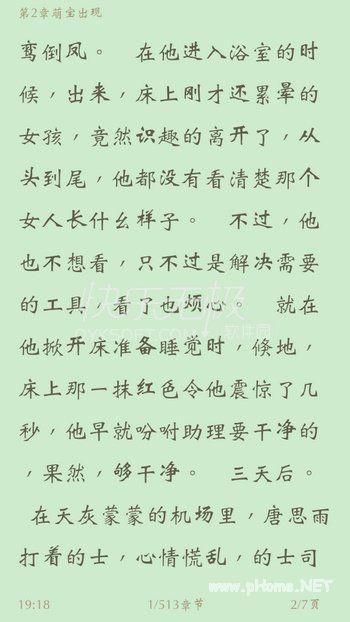 第2章萌宝出现
鸾倒凤。 在他进入浴室的时
候，出来，床上刚才还累晕的
女孩，竟然识趣的离开了，从
头到尾，他都没有看清楚那个
女人长什幺样子。 不过，他
也不想看，只不过是解决需要
的工具，看了也烦心。 就在
他掀开床准备睡觉时，倏地，
床上那一抹红色令他震惊了几
秒，他早就吩咐助理要干净的
，果然，够干净。 三天后。
在天灰蒙蒙的机场里，唐思雨
打着的士，心情慌乱，的士司
www.pHome.NET
19:18 1/513章节 2/7页